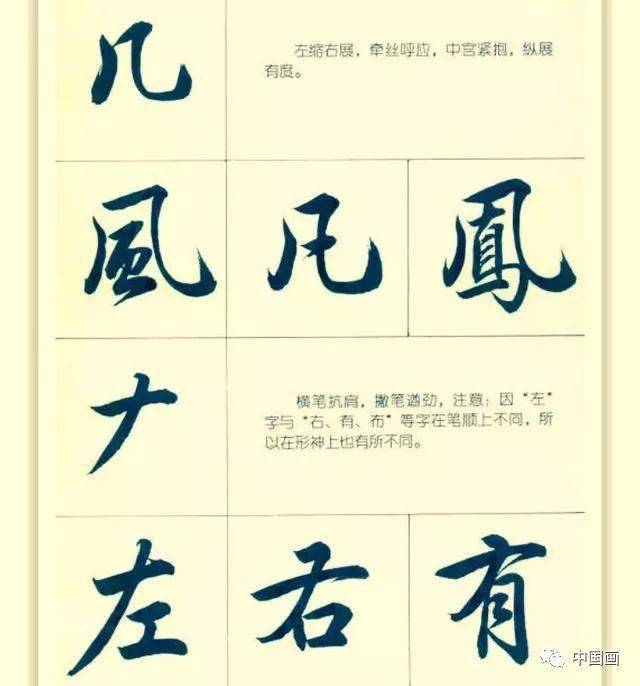 几
左缩右展，牵丝呼应，中宫紧抱，纵展
有度。
風 凡 鳳
𠂇
横笔抗肩，撇笔遒劲，注意：因“左”
字与“右、有、布”等字在笔顺上不同，所
以在形神上也有所不同。
左 右 有
中国画